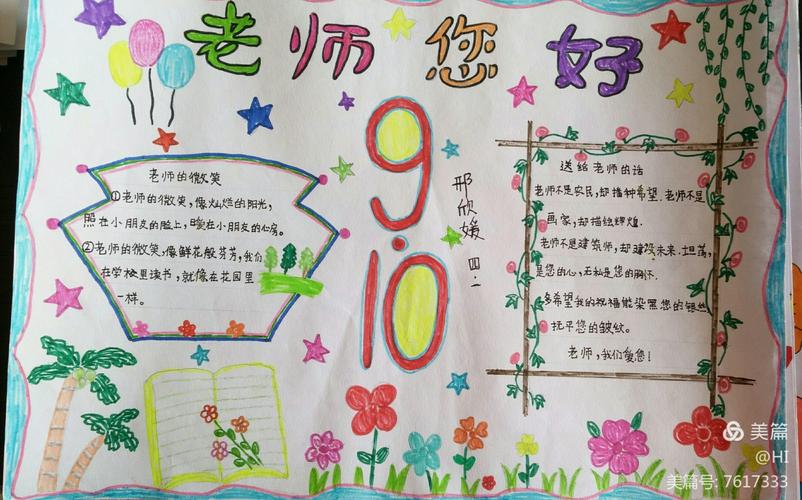 老师您好
老师的微笑
①老师的微笑，像灿烂的阳光，
照在小朋友的脸上，暖在小朋友的心房。
②老师的微笑，像鲜花般芬芳，我们
在学校里读书，就像在花园里
一样。
9.10
邢欣媛 四.二
送给老师的话
老师不是农民，却播种希望.老师不是
画家，却描绘辉煌.
老师不是建筑师，却建设未来.坦荡，
是您的心，无私是您的胸怀.
多希望我的祝福能染黑您的银丝
抚平您的皱纹。
老师，我们爱您！
美篇
@HI
美篇号: 7617333